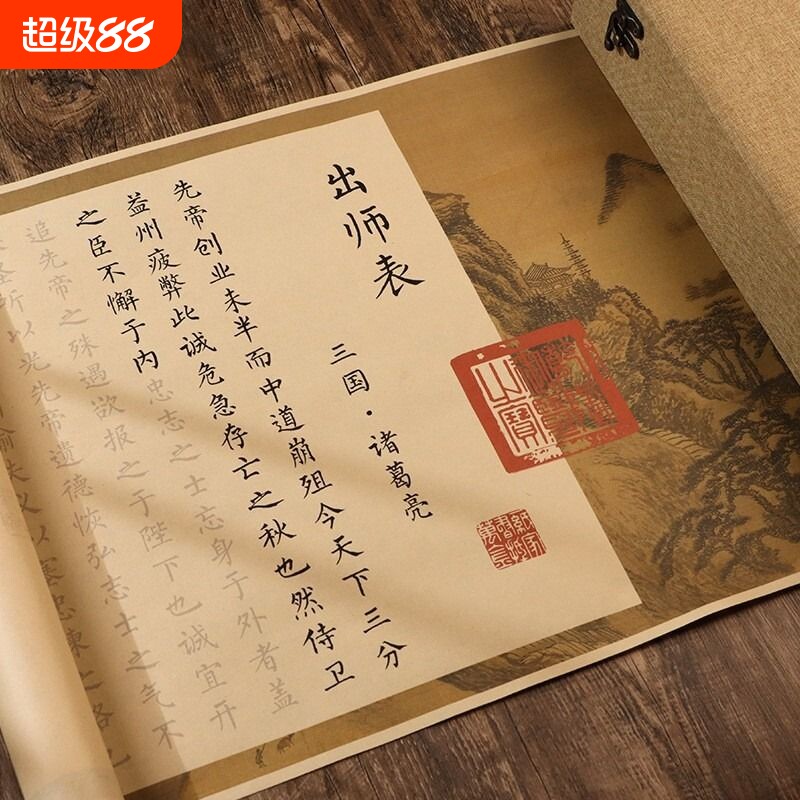 超级88
出师表
三国·诸葛亮
先帝创业未半而中道崩殂今天下三分
益州疲弊此诚危急存亡之秋也然侍卫
之臣不懈于内忠志之士忘身于外者盖
追先帝之殊遇欲报之于陛下也诚宜开
圣听以光先帝遗德恢弘志士之气不
喻失义以塞忠谏之路也
山寶